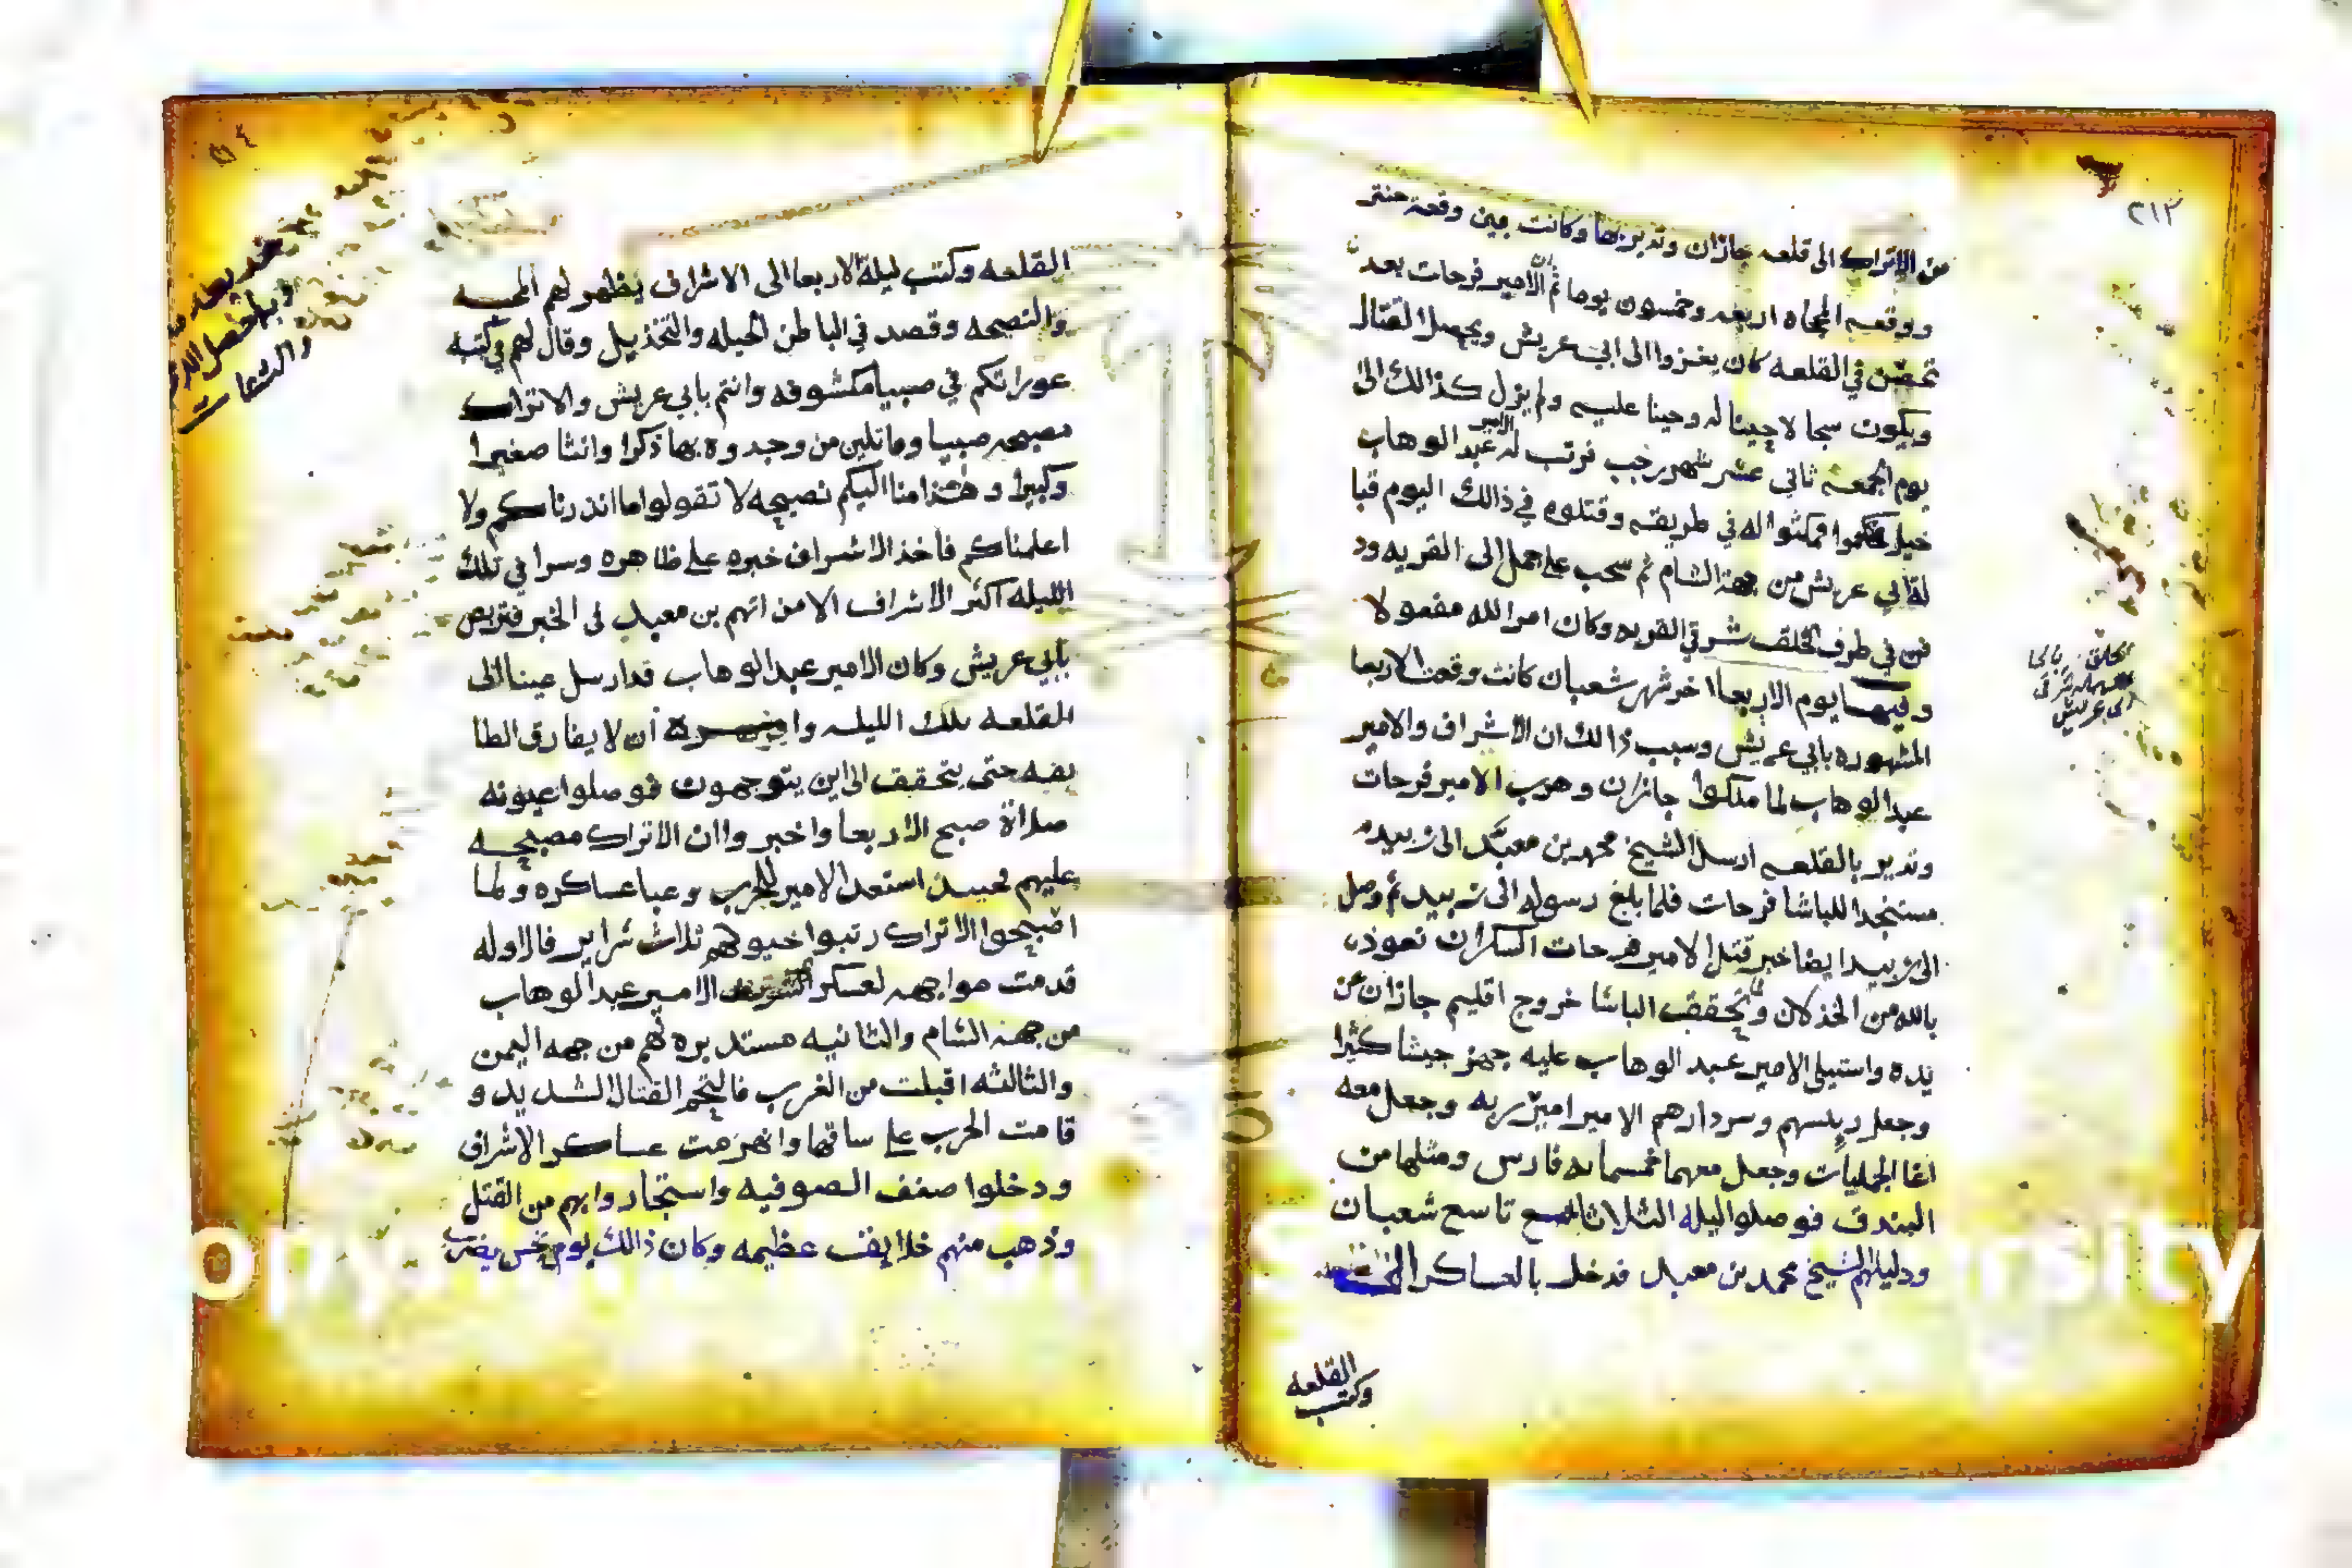 ٢١٣
من الاتراك الى قلعه جازان وتديربها وكانت بين وقعة حنتر
ووقعة المجاه اربعه وخمسون يوما ثم ان الامير فرحات بعد
تحصن في القلعه كان يغزوا الى ابي عريش ويحصل القتال
ويكون سجالا حينا له وحينا عليه ولم يزل كذالك الى
يوم الجمعة ثاني عشر شهر رجب فرتب له الامير عبد الوهاب
خيل فكمنوا له في طريقه وقتلوه في ذالك اليوم قبا
لة ابي عريش من جهة الشام ثم سحب على جمل الى القريه ود
فن في طرف الخلقة شرقي القريه وكان امر الله مفعولا
وفيها يوم الاربعا اخر شهر شعبان كانت وقعة الاربعا
المشهوره بابي عريش وسبب ذالك ان الاشراف والامير
عبد الوهاب لما ملكوا جازان وهرب الامير فرحات
وتدير بالقلعه ارسل الشيخ محمد بن معبد الى زبيد
مستنجدا للباشا فرحات فلما بلغ رسوله الى زبيد ثم وصل
الى زبيد ايضا خبر قتل الامير فرحات السكران نعوذ
بالله من الخذلان وتحقق الباشا خروج اقليم جازان من
يده واستيلى الامير عبد الوهاب عليه جهز جيشا كثيرا
وجعل رئيسهم وسردارهم الامير امير ربه وجعل معه
اغا الجمليات وجعل معهما خمسمايه فارس ومثلها من
البندق فوصلوا ليله الثلاثا تاسع شعبان
ودليلهم الشيخ محمد بن معبد فدخل بالعساكر الى
القلعه
وكتب
الى عريش
القلعه وكتب ليلة الاربعا الى الاشراف يظهر لهم المحبه
والنصيحه وقصد في الباطن الحيله والتخذيل وقال لهم في كتبه
عوراتكم في صبيا مكشوفه وانتم بابي عريش والاتراك
مصبحه صبيا وماتلين من وجدوه بها ذكرا وانثا صغيرا
وكبيرا وهذا منا اليكم نصيحه لا تقولوا ما انذرناكم ولا
اعلمناكم فاخذ الاشراف خبره على ظاهره وسرا في تلك
الليله اكثر الاشراف الا من اتهم بن معبد في الخبر فتربص
بابي عريش وكان الامير عبد الوهاب قد ارسل عينا الى
القلعه تلك الليله وامره أن لا يفارق الطا
يفه حتى يتحقق الى اين يتوجهون فوصلوا عيونه
صلاة صبح الاربعا واخبروا ان الاتراك مصبحه
عليهم فحينئذ استعد الامير للحرب وعبا عساكره ولما
اصبحوا الاتراك رتبوا خيولهم ثلاث شراير فالاوله
قدمت مواجهه لعسكر الشريف الامير عبد الوهاب
من جهة الشام والثانيه مستدبره لهم من جهه اليمن
والثالثه اقبلت من الغرب فالتحم القتال الشديد و
قامت الحرب على ساقها وانهزمت عساكر الاشراف
ودخلوا صفف الصوفيه واستجاروا بهم من القتل
وذهب منهم خلايف عظيمه وكان ذالك يوم نحس يضرب